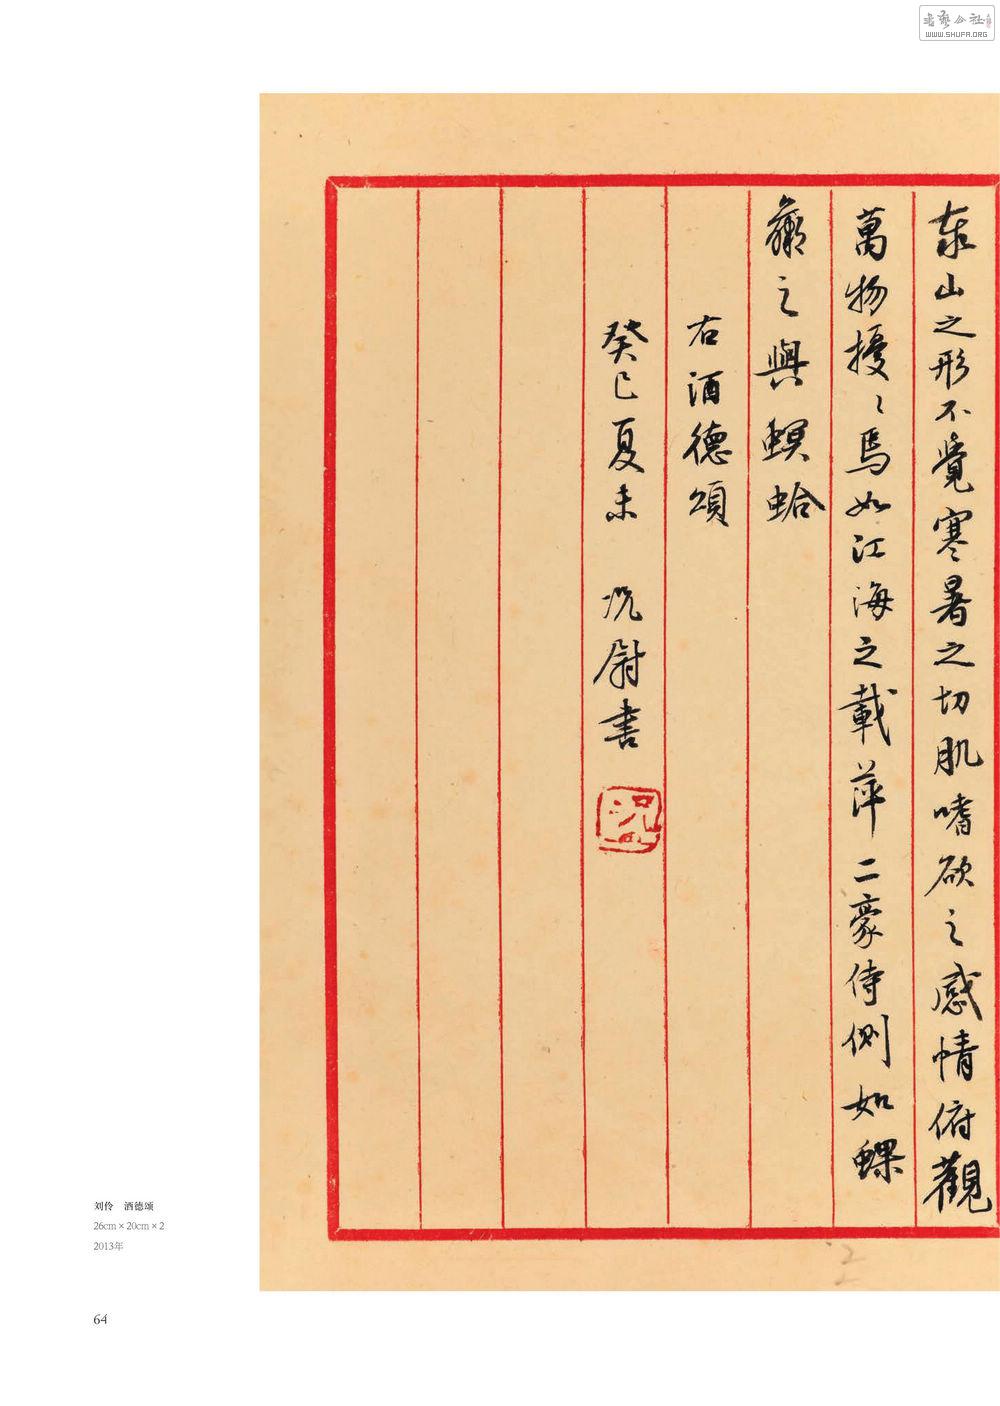 書藝公社
WWW.SHUFA.ORG
泰山之形不覺寒暑之切肌嗜欲之感情俯觀
萬物擾〻焉如江海之載萍二豪侍側如蜾
蠃之與螟蛤
右酒德頌
癸巳夏末 况尉書
刘伶 酒德颂
26cm×20cm×2
2013年
64